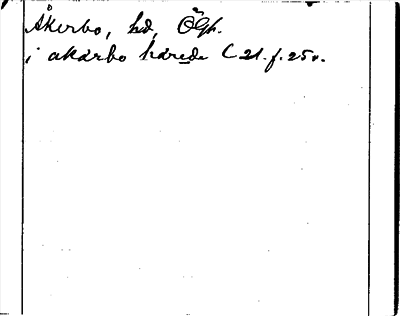 Åkerbo, hd, Ögtl.
i akarbo hærede C 21. f. 25v.